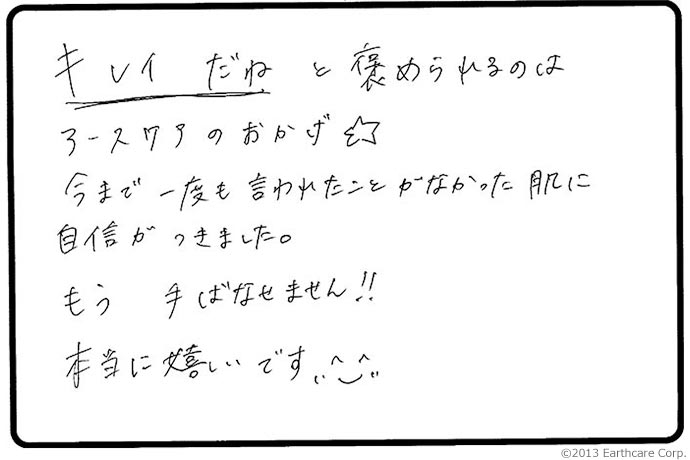 キレイ だねと褒められるのは
アースケアのおかげ☆
今まで一度も言われたことがなかった肌に
自信がつきました。
もう 手ばなせません!!
本当に嬉しいです
©2013 Earthcare Corp.